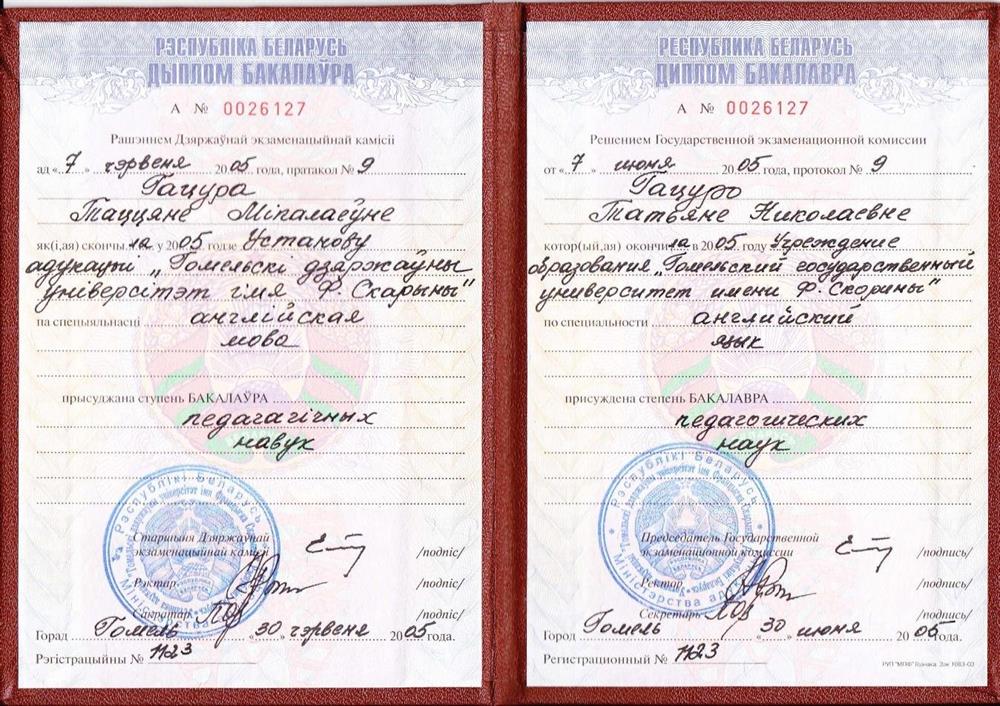 РЭСПУБЛІКА БЕЛАРУСЬ
ДЫПЛОМ БАКАЛАЎРА
А № 0026127
Рашэннем Дзяржаўнай экзаменацыйнай камісіі
ад «7» чэрвеня 2005 года, пратакол № 9
Гацура
Таццяне Мікалаеўне
які(і,ая) скончыла у 2005 годзе Установу
адукацыі „Гомельскі дзяржаўны
ўніверсітэт імя Ф. Скарыны"
па спецыяльнасці англійская
мова
прысуджана ступень БАКАЛАЎРА
педагагічных
навук
Старшыня Дзяржаўнай
экзаменацыйнай камісіі /подпіс/
Рэктар /подпіс/
Сакратар /подпіс/
Горад Гомель «30» чэрвеня 2005 года.
Рэгістрацыйны № 1123
РЕСПУБЛИКА БЕЛАРУСЬ
ДИПЛОМ БАКАЛАВРА
А № 0026127
Решением Государственной экзаменационной комиссии
от «7» июня 2005 года, протокол № 9
Гацуро
Татьяне Николаевне
котор(ый,ая) окончила в 2005 году Учреждение
образования „Гомельский государственный
университет имени Ф. Скорины"
по специальности английский
язык
присуждена степень БАКАЛАВРА
педагогических
наук
Председатель Государственной
экзаменационной комиссии /подпись/
Ректор /подпись/
Секретарь /подпись/
Город Гомель «30» июня 2005 года.
Регистрационный № 1123